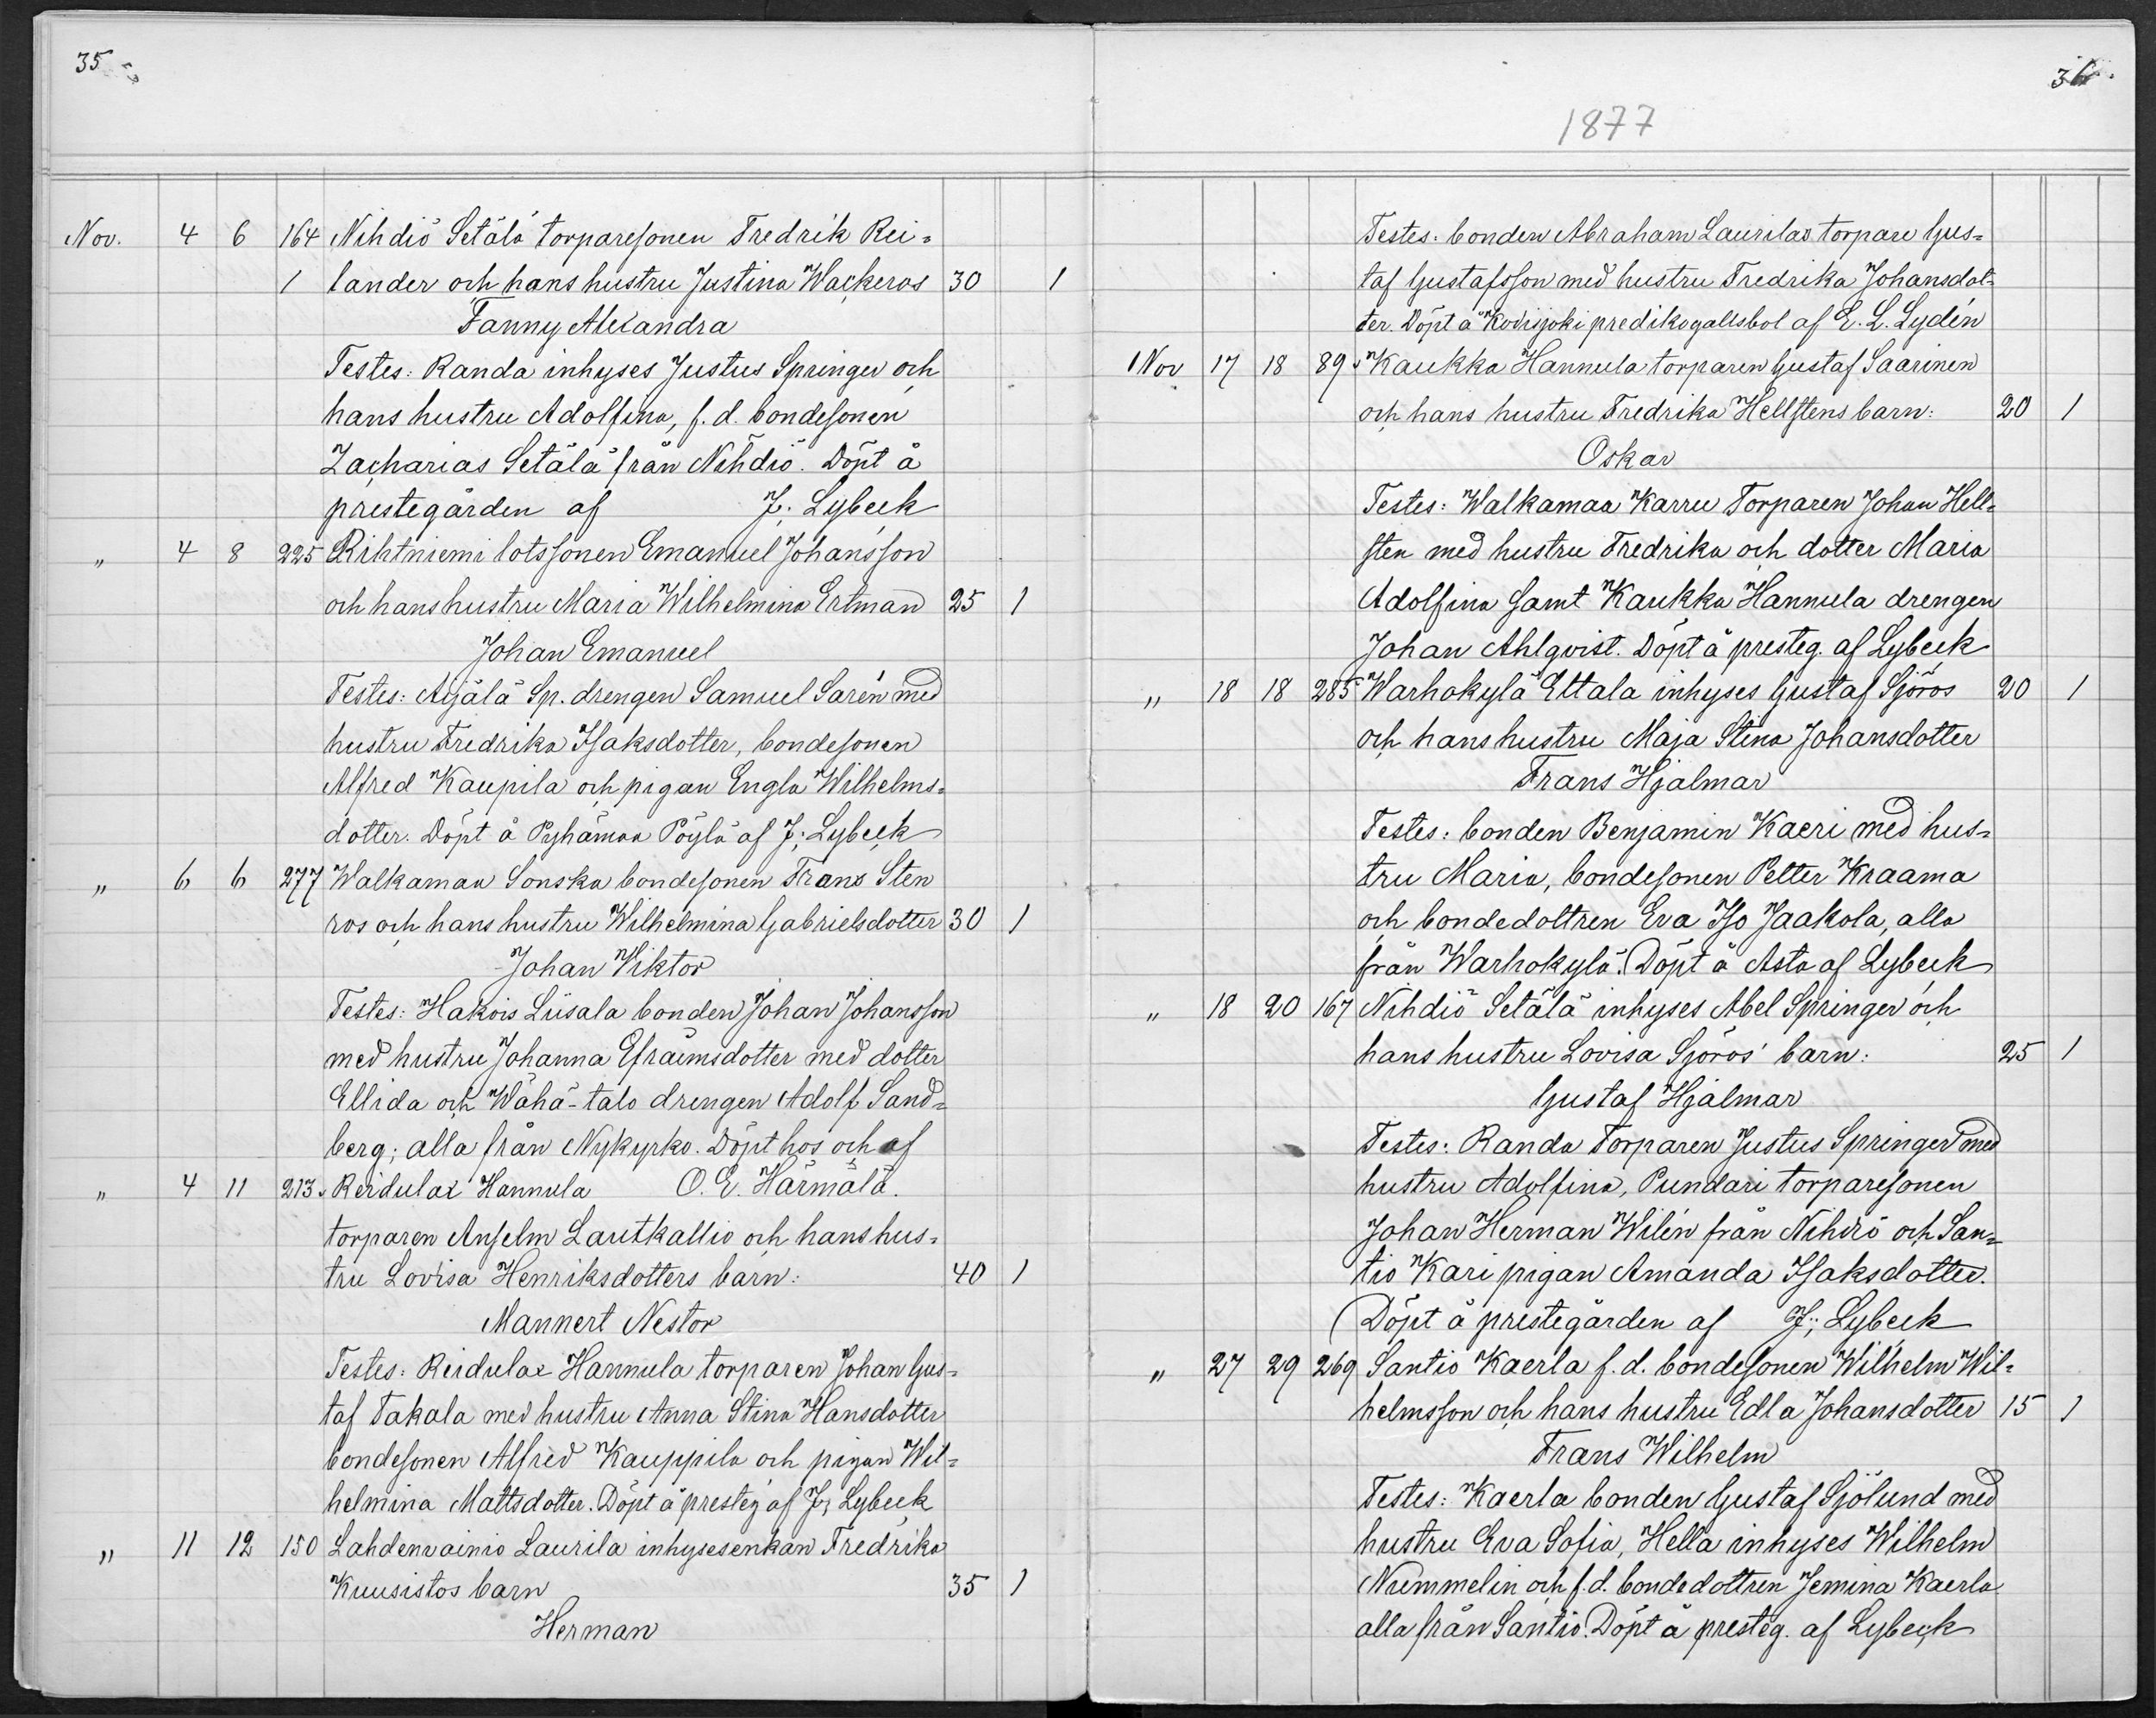 35
Nov. 4 6 164 Nihdiö Setälä torparesonen Fredrik Rei-
1 lander och hans hustru Justina Wackeros 30 1
Fanny Alexandra
Testes: Randa inhyses Justus Springer och
hans hustru Adolfina, f. d. bondesonen
Zacharias Setälä från Nihdiö. Döpt å
prestegården af J. Lybeck
" 4 8 225 Rihtniemi lotssonen Emanuel Johansson
och hans hustru Maria Wilhelmina Ertman 25 1
Johan Emanuel
Testes: Äyälä Sp. drengen Samuel Sarén med
hustru Fredrika Isaksdotter, bondesonen
Alfred Kaupila och pigan Engla Wilhelms-
dotter. Döpt å Pyhämaa Pöylä af J. Lybeck
" 6 6 277 Walkamaa Sonska bondesonen Frans Sten
ros och hans hustru Wilhelmina Gabrielsdotter 30 1
Johan Wiktor
Testes: Hakois Liisala bonden Johan Johansson
med hustru Johanna Efraimsdotter med dotter
Ellida och Wähä-talo drengen Adolf Sand-
berg; alla från Nykyrko. Döpt hos och af
" 4 11 213 Reidulax Hannula O. E. Härmälä.
torparen Anselm Lautkallio och hans hus-
tru Lovisa Henriksdotters barn: 40 1
Mannert Nestor
Testes: Reidulax Hannula torparen Johan Gus-
taf Takala med hustru Anna Stina Hansdotter
bondesonen Alfred Kauppila och pigan Wil-
helmina Mattsdotter. Döpt å presteg af J. Lybeck
" 11 12 150 Lahdenvainio Laurila inhysesenkan Fredrika
Kuusistos barn 35 1
Herman
36.
1877
Testes: bonden Abraham Laurilas torpare Gus-
taf Gustafsson med hustru Fredrika Johansdot-
ter. Döpt å Kodisjoki predikogallsbol af E. L. Lydén
Nov 17 18 89 Kaukka Hannula torparen Gustaf Saarinen
och hans hustru Fredrika Hellstens barn: 20 1
Oskar
Testes: Walkamaa Karru Torparen Johan Hell-
sten med hustru Fredrika och dotter Maria
Adolfina samt Kaukka Hannula drengen
Johan Ahlqvist. Döpt å presteg. af Lybeck
" 18 18 285 Warhokylä Ettala inhyses Gustaf Sjöros 20 1
och hans hustru Maja Stina Johansdotter
Frans Hjalmar
Testes: bonden Benjamin Kaeri med hus-
tru Maria, bondesonen Petter Kraama
och bondedottren Eva Iso Jaakola, alla
från Warhokylä. Döpt å Asta af Lybeck
" 18 20 167 Nihdiö Setälä inhyses Abel Springer och
hans hustru Lovisa Sjöros' barn: 25 1
Gustaf Hjalmar
Testes: Randa Torparen Justus Springer med
hustru Adolfina, Pundari torparesonen
Johan Herman Wilén från Nihdiö och San-
tio Kari pigan Amanda Isaksdotter.
Döpt å prestegården af J. Lybeck
" 27 29 269 Santio Kaerla f. d. bondesonen Wilhelm Wil-
helmsson och hans hustru Edla Johansdotter 15 1
Frans Wilhelm
Testes: Kaerla bonden Gustaf Sjölund med
hustru Eva Sofia, Hella inhyses Wilhelm
Nummelin och f. d. bondedottren Jemina Kaerla
alla från Santio. Döpt å presteg. af Lybeck